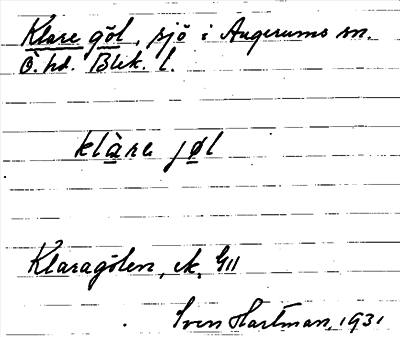 Klare göl, sjö i Augerums sn.
Ö. hd. Blek. l.
klàre jøl
Klaragölen, ek. G11
Sven Hartman, 1931